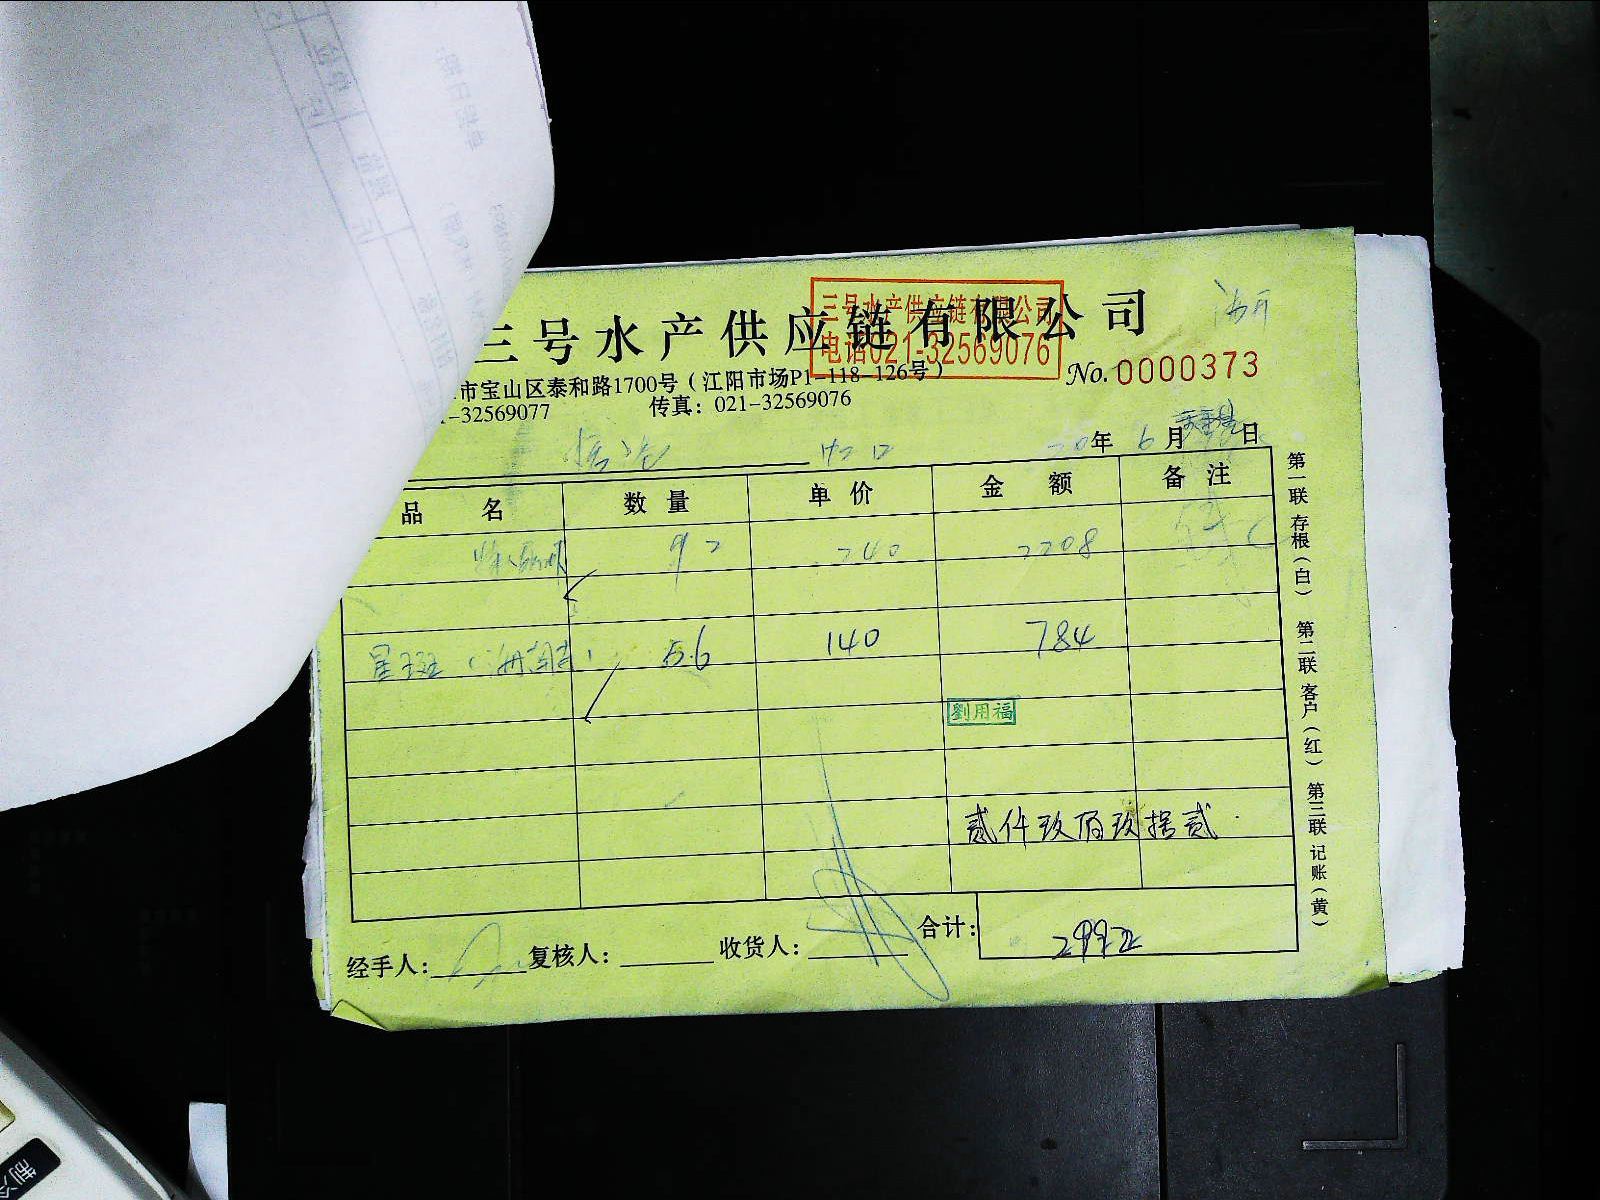 三号水产供应链有限公司
三号水产供应链有限公司
电话021-32569076
市宝山区泰和路1700号（江阳市场P1-118-126号）
No. 0000373
-32569077 传真：021-32569076
20年 6月 日
品名 数量 单价 金额 备注
92 240 2208
星斑 5.6 140 784
劉用福
贰仟玖佰玖拾贰
合计： 2992
经手人： 复核人： 收货人：
第一联 存根（白） 第二联 客户（红） 第三联 记账（黄）
制冷